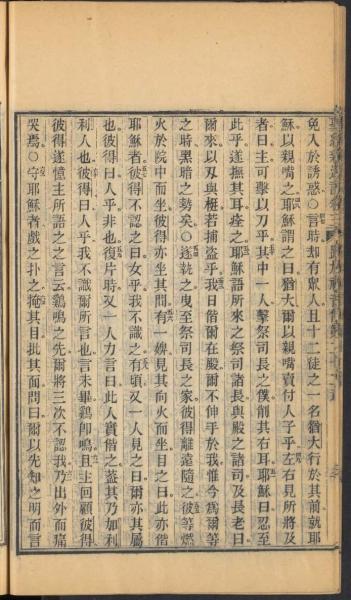 免入於誘惑○言時却有衆人且十二徒之一名猶大行於其前就耶
穌以親嘴之耶穌謂之曰猶大爾以親嘴賣付人子乎左右見所將及
者曰主可擊以刀乎其中一人擊祭司長之僕削其右耳耶穌曰忍至
此乎遂撫其耳痊之耶穌語所來之祭司諸長與殿之諸司及長老曰
爾來以刃與梃若捕盜乎我日偕爾在殿爾不伸手於我惟今爲爾等
之時黑暗之勢矣○遂執之曳至祭司長之家彼得離遠隨之彼等燃
火於院中而坐彼得亦坐其間有一婢見其向火而坐目之曰此亦偕
耶穌者彼得不認之曰女乎我不識之有頃又一人見之曰爾亦其屬
也彼得曰人乎非也復片時又一人力言曰此人實偕之蓋其乃加利
利人也彼得曰人乎我不識爾所言也言未畢鷄卽鳴且主回顧彼得
彼得遂憶主所語之之言云鷄鳴之先爾將三次不認我乃出外而痛
哭焉○守耶穌者戲之扑之掩其目批其面問曰爾以先知之明而言